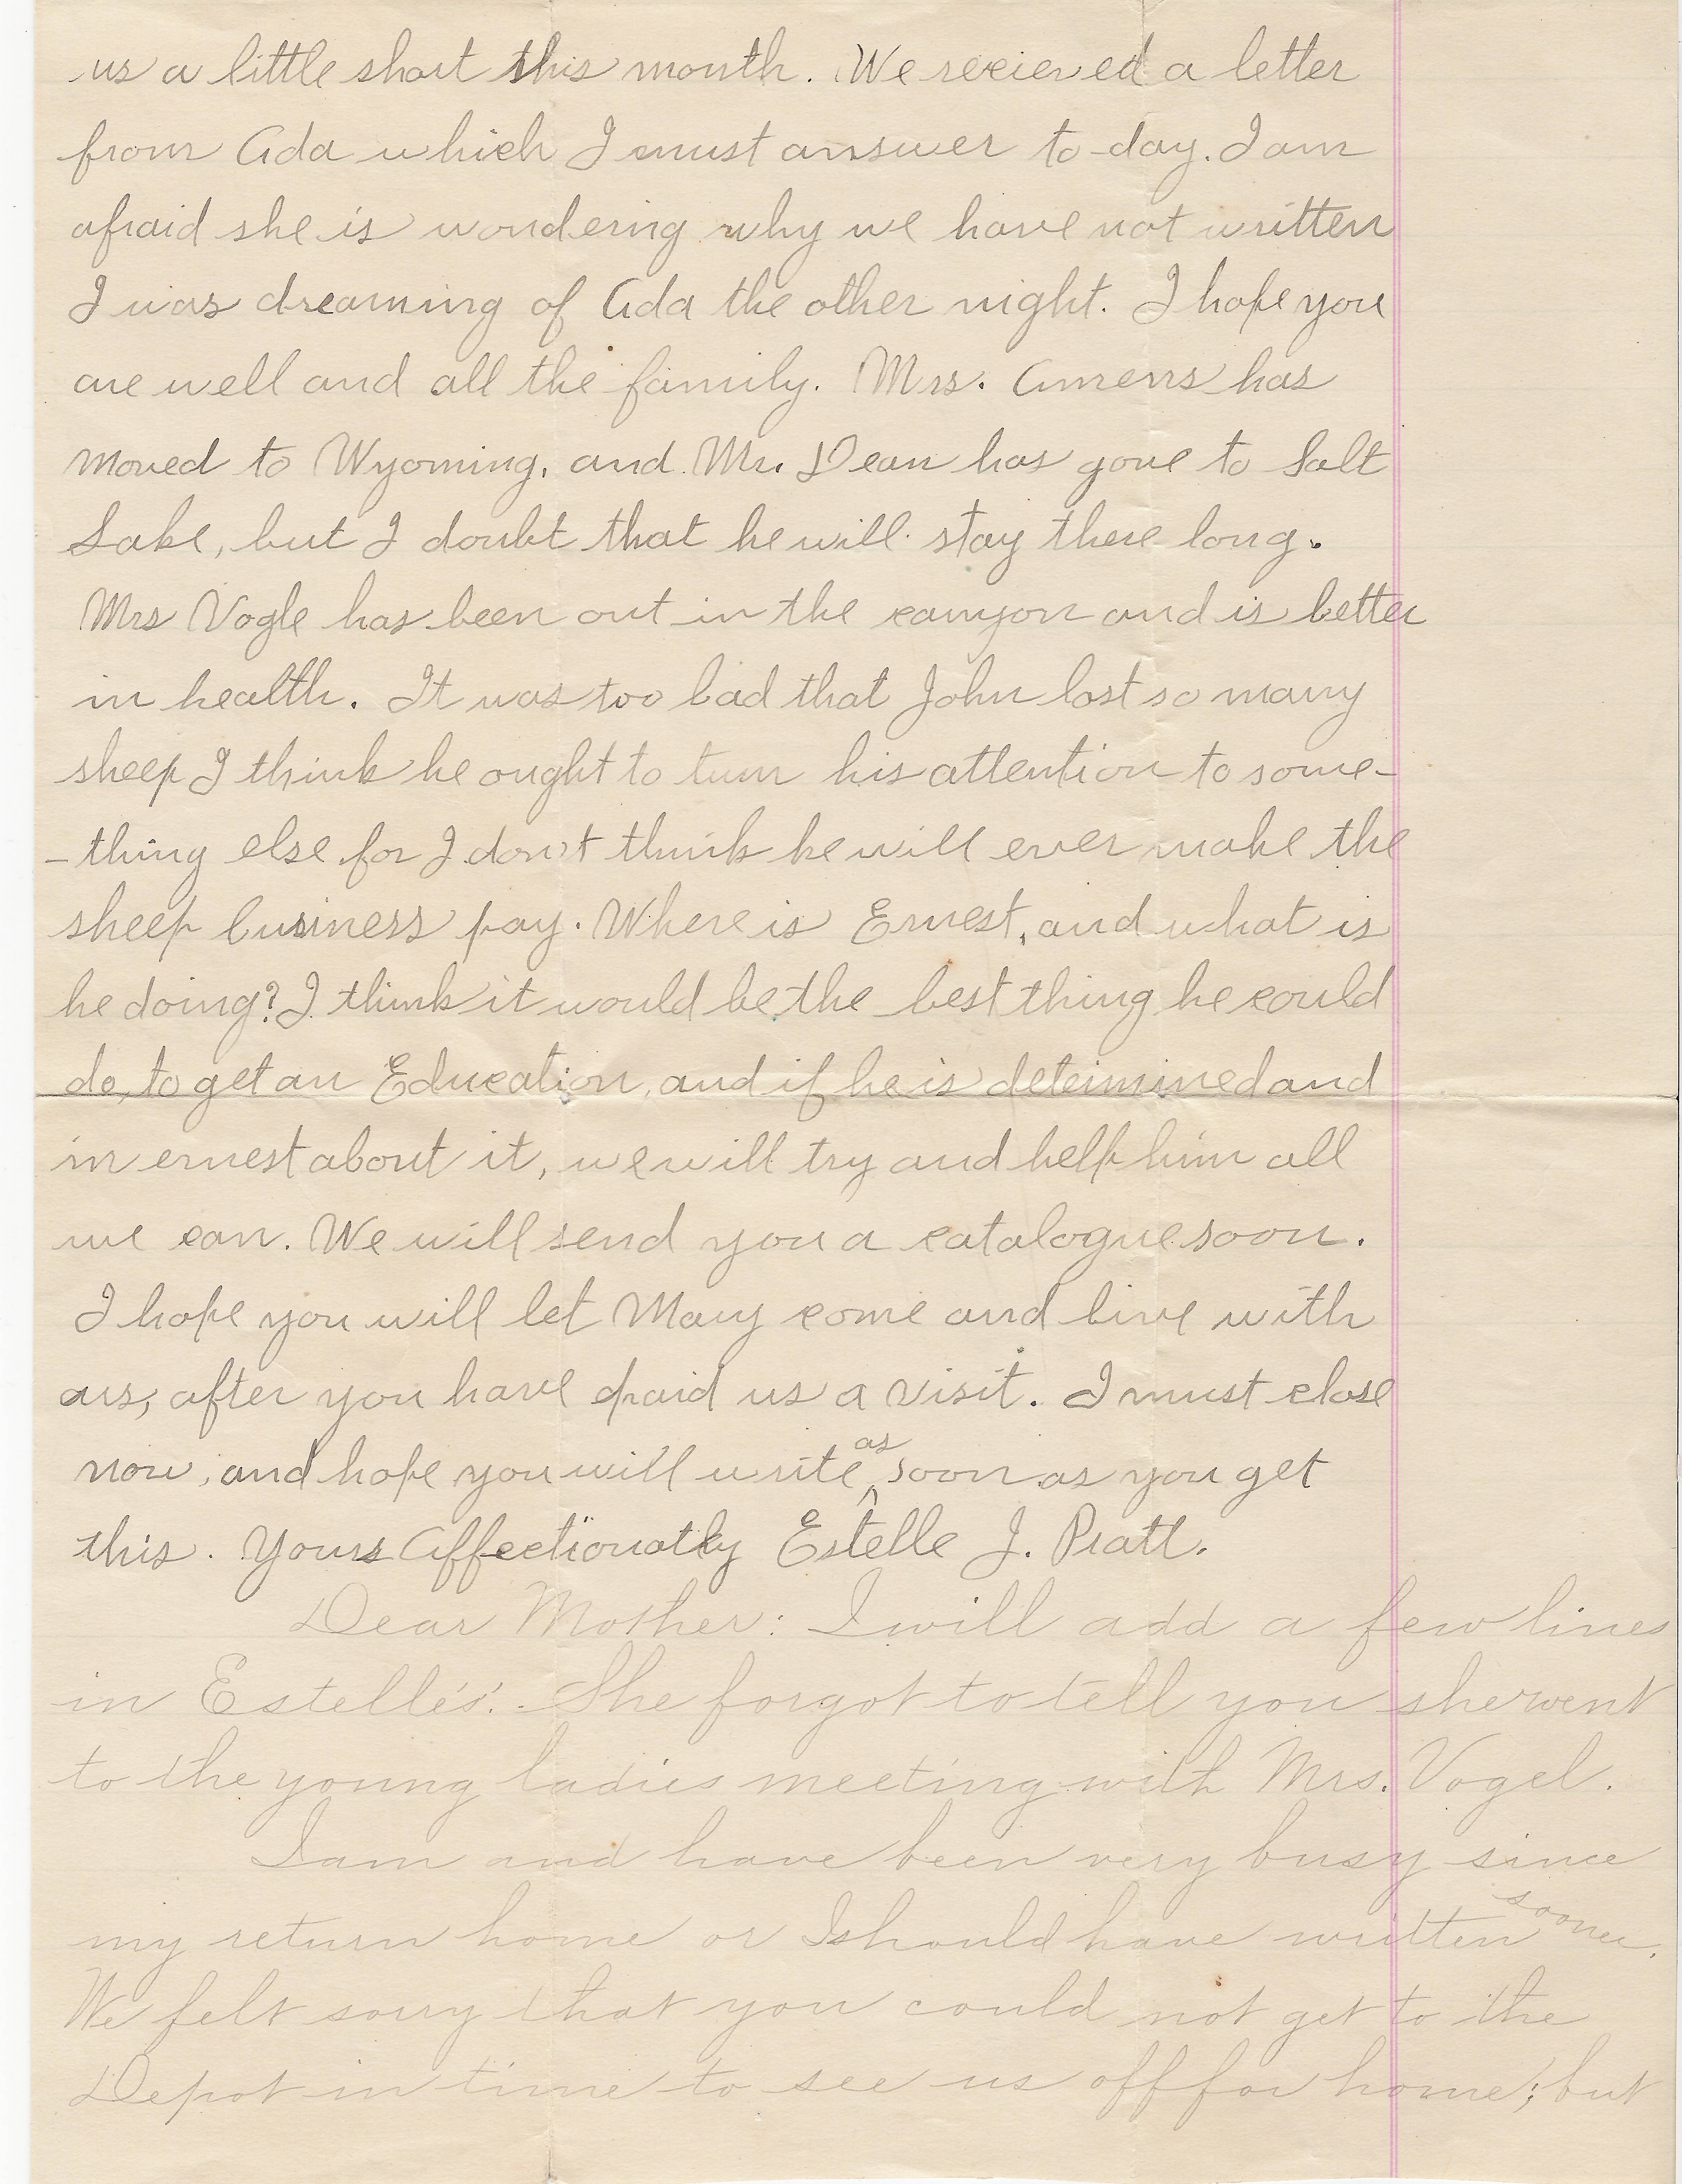 us a little short this month. We recieved a letter
from Ada which I must answer to-day. I am
afraid she is wondering why we have not written
I was dreaming of Ada the other night. I hope you
are well and all the family. Mrs. Amens has
moved to Wyoming, and Mr. Dean has gone to Salt
Lake, but I doubt that he will stay there long.
Mrs Vogle has been out in the canyon and is better
in health. It was too bad that John lost so many
sheep I think he ought to turn his attention to some-
-thing else for I don't think he will ever make the
sheep business pay. Where is Ernest, and what is
he doing? I think it would be the best thing he could
do, to get an Education, and if he is determined and
in ernest about it, we will try and help him all
we can. We will send you a catalogue soon.
I hope you will let Mary come and live with
us, after you have paid us a visit. I must close
now, and hope you will write as soon as you get
this. Yours Affectionatly Estelle J. Pratt.
Dear Mother: I will add a few lines
in Estelle's. She forgot to tell you she went
to the young ladies meeting with Mrs. Vogel.
I am and have been very busy since
my return home or I should have written sooner.
We felt sorry that you could not get to the
Depot in time to see us off for home; but